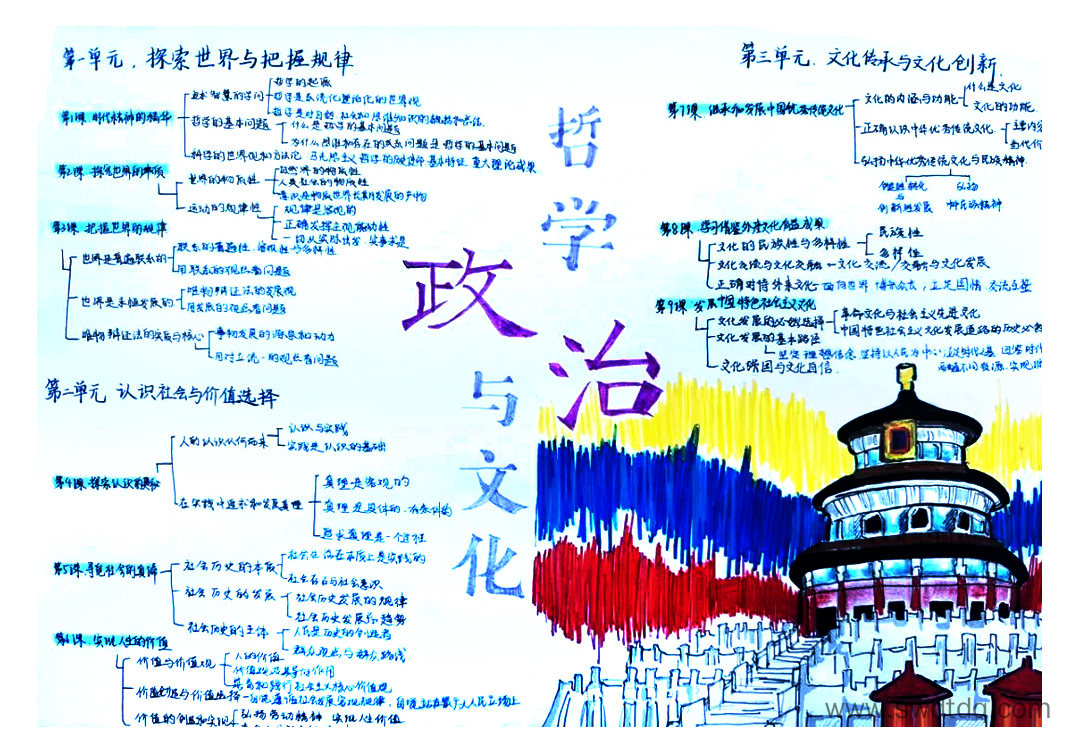 第一单元.探索世界与把握规律
第1课.时代精神的精华
追求智慧的学问
哲学的起源
哲学是系统化理论化的世界观
哲学是对自然、社会和思维知识的概括和总结.
哲学的基本问题
什么是哲学的基本问题
为什么思维和存在的关系问题是哲学的基本问题
科学的世界观和方法论
马克思主义哲学的 基本特征 重大理论成果
第2课.探究世界的本质
世界的物质性
自然界的物质性
人类社会的物质性
意识是物质世界长期发展的产物
运动的规律性
规律是客观的
正确发挥主观能动性
一切从实际出发 实事求是
第3课.把握世界的规律
世界是普遍联系的
联系的普遍性、客观性与多样性
用联系的观点看问题
世界是永恒发展的
唯物辩证法的发展观
用发展的观点看问题
唯物辩证法的实质与核心
事物发展的源泉和动力
用对立统一的观点看问题
第二单元 认识社会与价值选择
第4课.探索认识的奥秘
人的认识从何而来
认识与实践
实践是认识的基础
在实践中追求和发展真理
真理是客观的
真理是具体的.有条件的
追求真理是一个过程
第5课.寻觅社会的真谛
社会历史的本质
社会生活在本质上是实践的
社会存在与社会意识
社会历史的发展
社会历史发展的规律
社会历史发展的趋势
社会历史的主体
人民是历史的创造者
群众观点与群众路线
第6课.实现人生的价值
价值与价值观
人的价值
价值观及其导向作用
价值判断与价值选择
自觉遵循社会发展客观规律,自觉站在最广大人民立场上
价值的创造和实现
弘扬劳动精神 实现人生价值
哲学
政治
与文化
第三单元.文化传承与文化创新
第7课.继承和发展中国优秀传统文化
文化的内涵与功能
什么是文化
文化的功能
正确认识中华优秀传统文化
主要内容
当代价
弘扬中华优秀传统文化与民族精神
创造性转化
与
创新性发展
弘扬
中华民族精神
第8课.学习借鉴外来文化有益成果
文化的民族性与多样性
民族性
多样性
文化交流与文化交融
文化交流/交融与文化发展
正确对待外来文化
面向世界 博采众长,立足国情 交流互鉴
第9课.发展中国特色社会主义文化
文化发展的必然选择
革命文化与社会主义先进文化
中国特色社会主义文化发展道路的历史必然
文化发展的基本路径
坚定理想信念 坚持以人民为中心
文化强国与文化自信
www.swdtdq.com